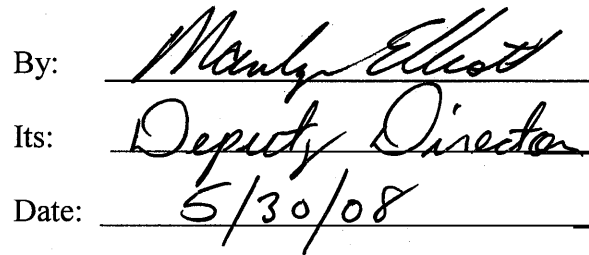 By: Marilyn Elliott
Its: Deputy Director
Date: 5/30/08